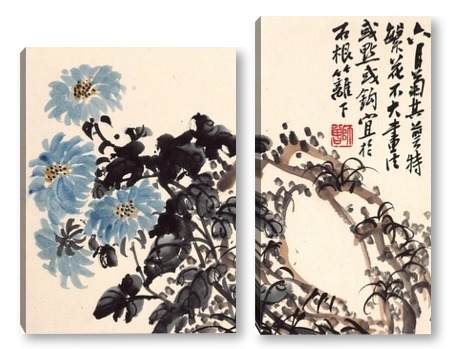 六月菊其特
繁花不大畫法
或點或鈎宜於
石根籬下
師曾